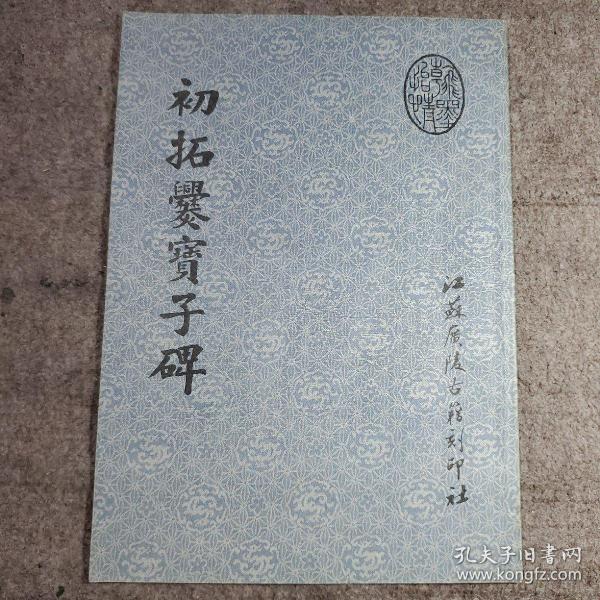 初拓爨寶子碑
江蘇廣陵古籍刻印社
孔夫子旧书网
www.kongfz.com